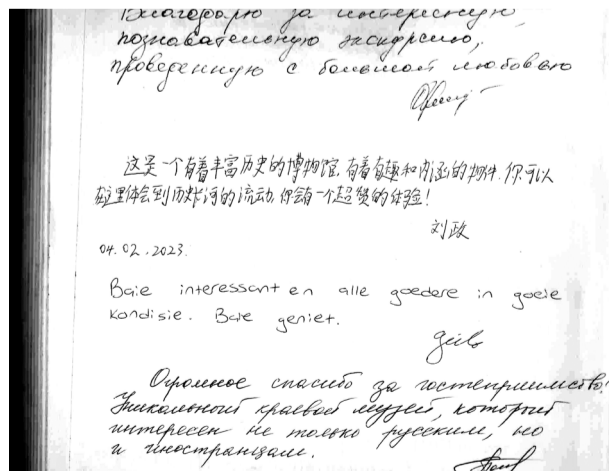 Благодарю за интересную,
познавательную экскурсию,
проведенную с большой любовью
这是一个有着丰富历史的博物馆,有着有趣和内涵的物件.你可以
在这里体会到历史长河的流动,你会有一个超赞的体验!
刘政
04.02.2023.
Baie interessant en alle goedere in goeie
kondisie. Baie geniet.
Огромное спасибо за гостеприимство!
Уникальный краевой музей, который
интересен не только русским, но
и иностранцам.